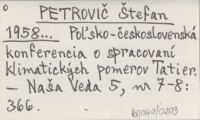 PETROVIČ Štefan
1958... Poľsko-československá
konferencia o spracovaní
klimatických pomerov Tatier.
— Naša Veda 5, nr 7-8:
366.